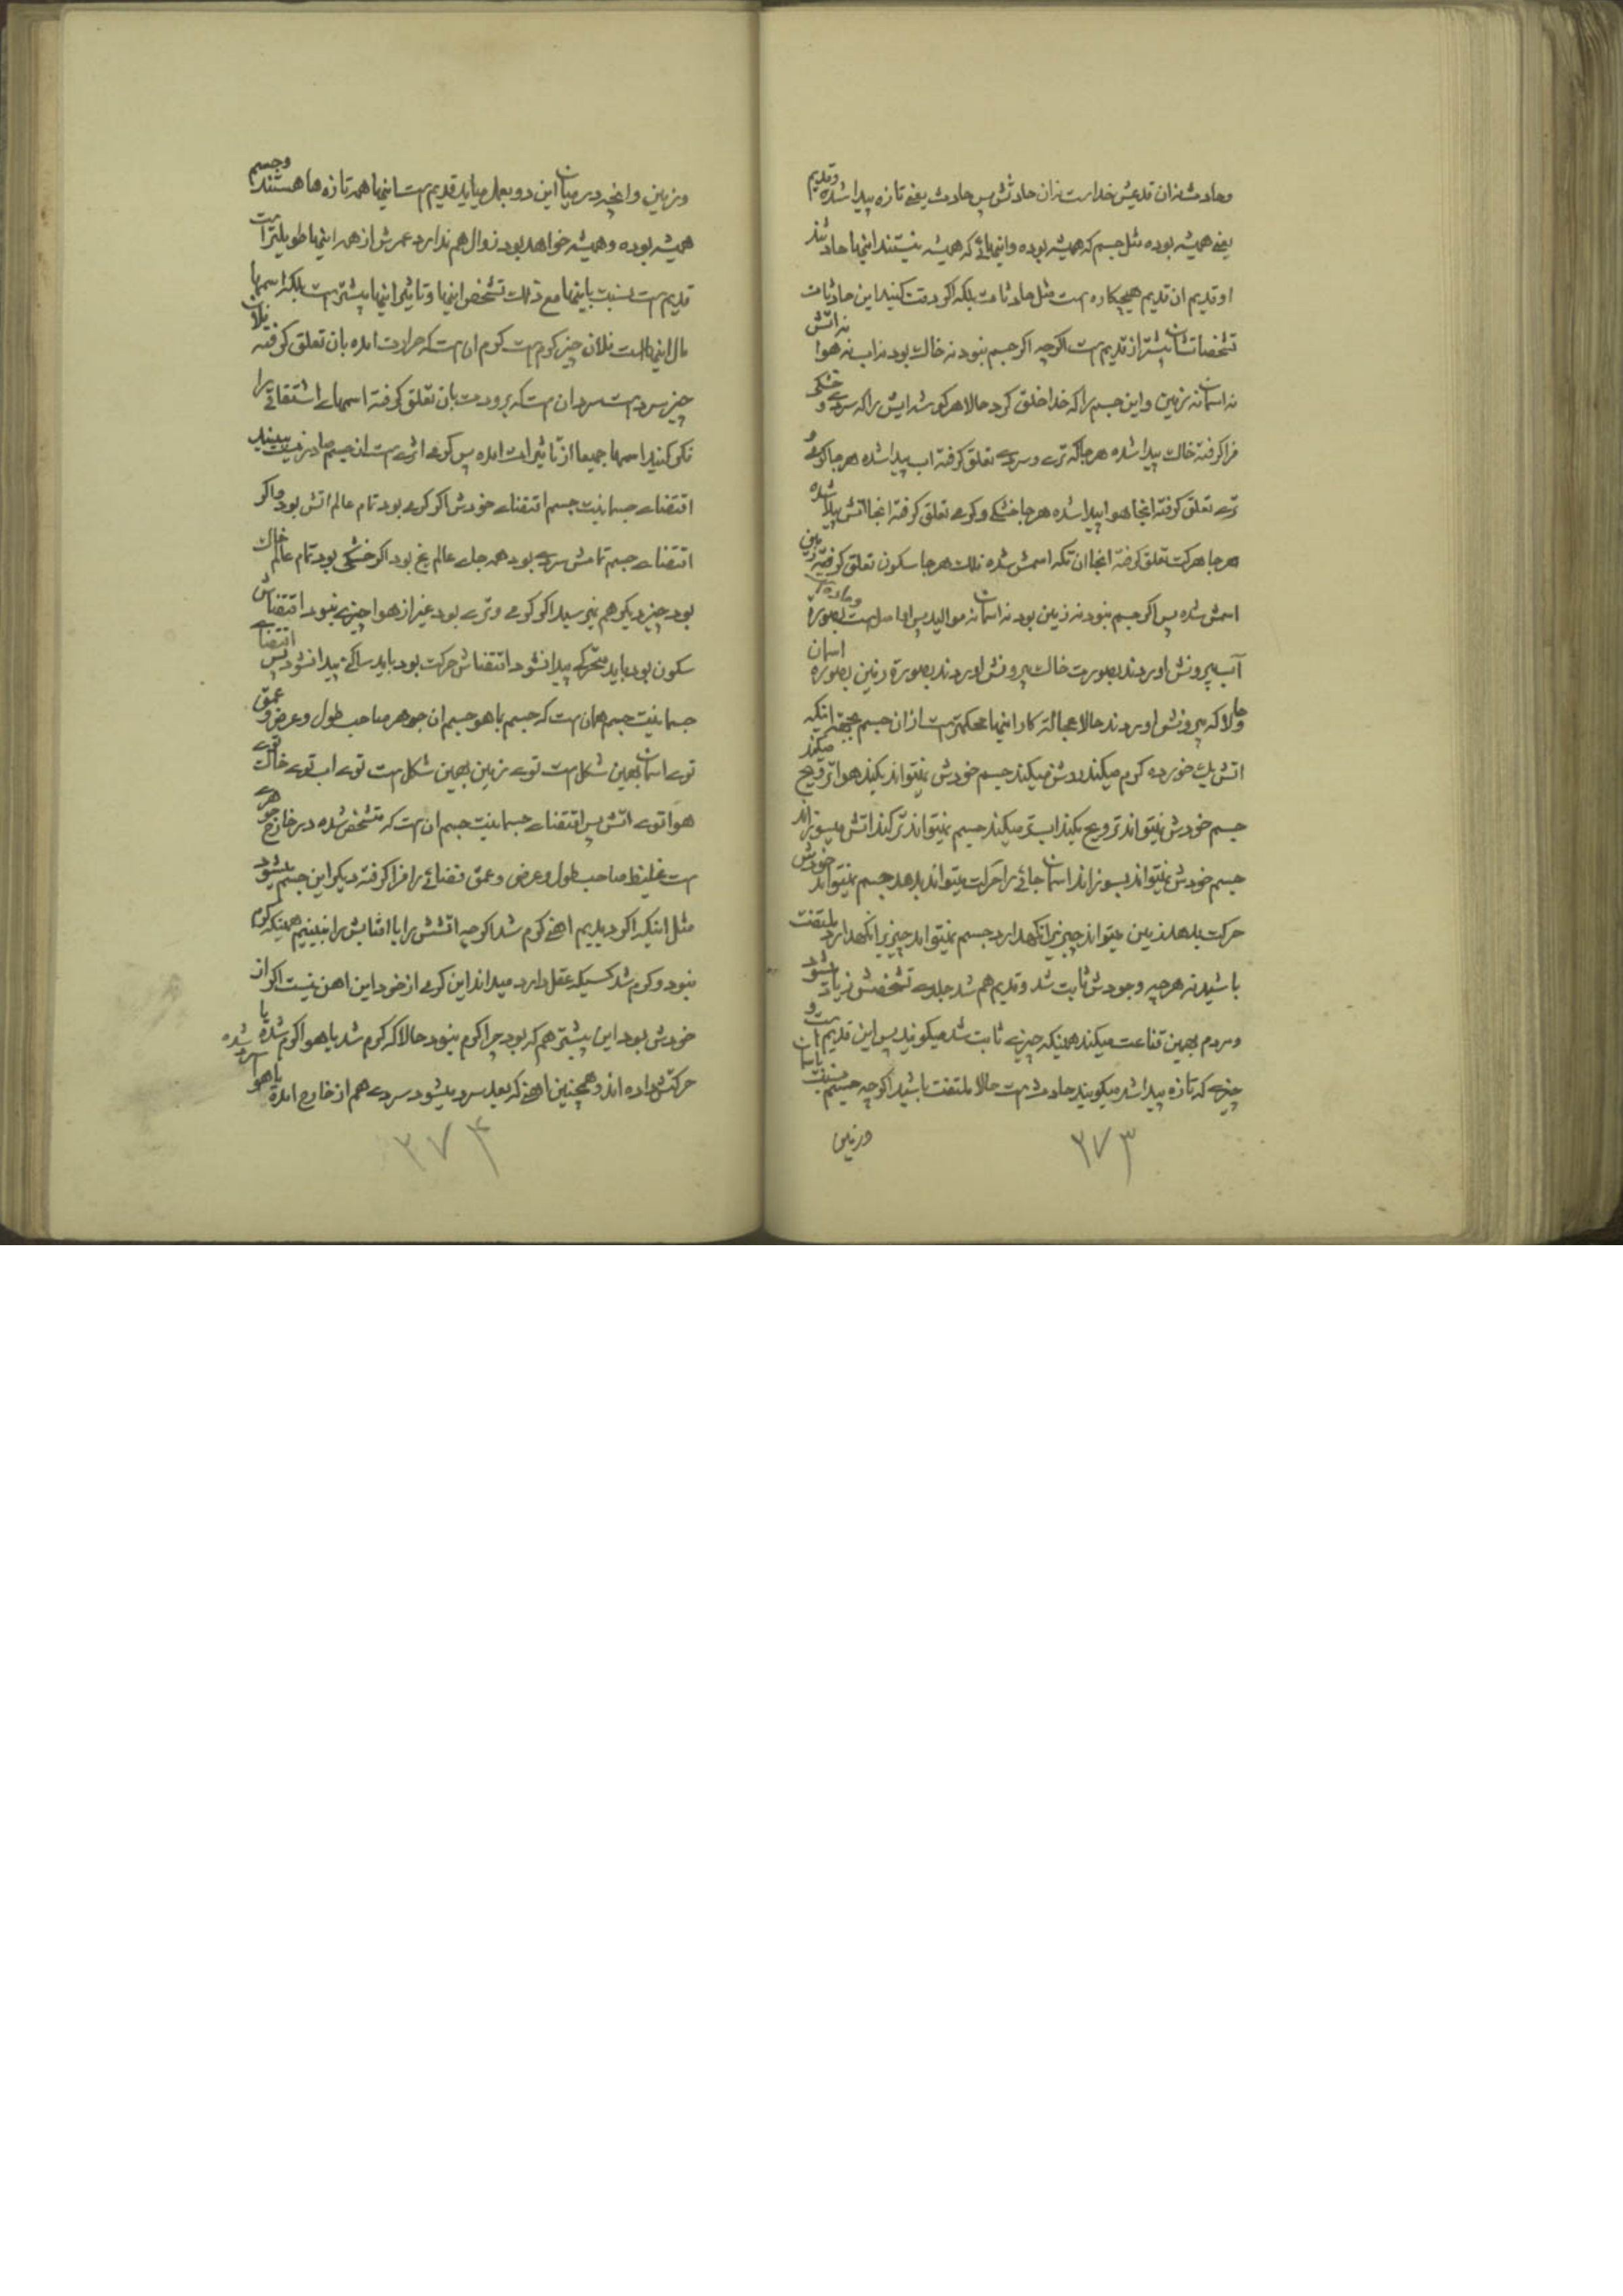 وحادث نه ان قدیمش خداست نه ان حادثش پس حادث یعنی تازه پیدا شده وقدیم
یعنی همیشه بوده مثل جسم که همیشه بوده واینهائی که همیشه نیستند اینها حادثند
او قدیم ان قدیم هیچکاره است مثل حادثات بلکه اکر دقت کنید این حادثات
تشخصاتشان بیشتر از قدیم است اکرچه اکر جسم نبود نه خاک بود نه اب نه هوا نه اتش
نه اسمان نه زمین واین جسم را که خدا خلق کرد حالا هر کوشه ایش را که سردی و خشکی
فرا کرفته خاک پیدا شده هر جا که تری وسردی تعلق کرفته اب پیدا شده هر جا کرمی و
تری تعلق کرفته انجا هوا پیدا شده هر جا خشکی وکرمی تعلق کرفته انجا اتش پیدا شده
هر جا حرکت تعلق کرفته انجا ان تکه اسمش شده فلک هر جا سکون تعلق کرفته زمین
اسمش شده پس اکر جسم نبود نه زمین بود نه اسمان نه موالید پس اصل است بصورة
آب بیرونش اوردند بصورت خاک بیرونش اوردند بصورة زمین بصورة اسمان
حالا که بیرونش اوردند حالا عجالة کار اینها محکمتر است از ان جسم بجهة اینکه
اتش یک خورده کرم میکند روشن میکند جسم خودش نمیتواند بکند هوا ترویح میکند
جسم خودش نمیتواند ترویح بکند اب تر میکند جسم نمیتواند تر کند اتش میسوزاند
جسم خودش نمیتواند بسوزاند اسمان جائی را حرکت میتواند بدهد جسم نمیتواند خودش
حرکت بدهد زمین میتواند چیزیرا نکهدارد جسم نمیتواند چیزیرا نکهدارد ملتفت
باشید نه هر چه وجودش ثابت شد وقدیم هم شد جلدی تشخصش زیاد شود
ومردم بهمین قناعت میکنند همینکه چیزی ثابت شد میکویند پس این قدیم است و
چیزی که تازه پیدا شد میکویند حادث است حالا ملتفت باشید اکرچه جسم نسبت باسمان
وزمین
۳۷۳
وزمین وانچه در میان این دو بعمل میاید قدیم است اینها همه تازه ها هستند وجسم
همیشه بوده وهمیشه خواهد بود زوال هم ندارد عمرش از همه اینها طویلتر است
قدیم است نسبت باینها مع ذلک تشخص اینها وتاثیر اینها بیشتر است بلکه اسمها
مال اینها است فلان چیز کرم است کرم ان است که حرارت امده بان تعلق کرفته فلان
چیز سرد است سرد ان است که برودت بان تعلق کرفته اسمهای اشتقاقی را
فکر کنید اسمها جمیعا از تاثیرات امده پس کرمی اثری است از جسم صادر نیست ببینید
اقتضای جسمانیت جسم اقتضای خودش اکر کرمی بود تمام عالم اتش بود واکر
اقتضای جسم تمامش سردی بود همه جای عالم یخ بود اکر خشکی بود تمام عالم خاک
بود چیز دیکر هم نمیرسید اکر کرمی وتری بود غیر از هوا چیزی نبود اقتضاش
سکون بود باید متحرکی پیدا نشود اقتضاش حرکت بود باید ساکنی پیدا نشود پس اقتضای
جسمانیت جسم همان است که جسم بما هو جسم ان جوهر صاحب طول وعرض و عمق
توی اسمان بهمین شکل است توی زمین بهمین شکل است توی اب توی خاک توی
هوا توی اتش پس اقتضای جسمانیت جسم ان است که متشخص شده در خارج جوهری
است غلیظ صاحب طول وعرض وعمق فضائی را فرا کرفته دیکر این جسم میشود
مثل اینکه اکر دیدیم اهنی کرم شد اکرچه اتشش را یا افتابش را نبینیم همینکه کرم
نبود وکرم شد کسیکه عقل دارد میداند این کرمی از خود این اهن نیست اکر از
خودش بود این بیشتر هم که بود چرا کرم نبود حالا که کرم شد یا هوا کرم شده یا
حرکتش داده اند وهمچنین اهنی که بعد سرد میشود سردی هم از خارج امده یا هوا سرد شده
۳۷۴